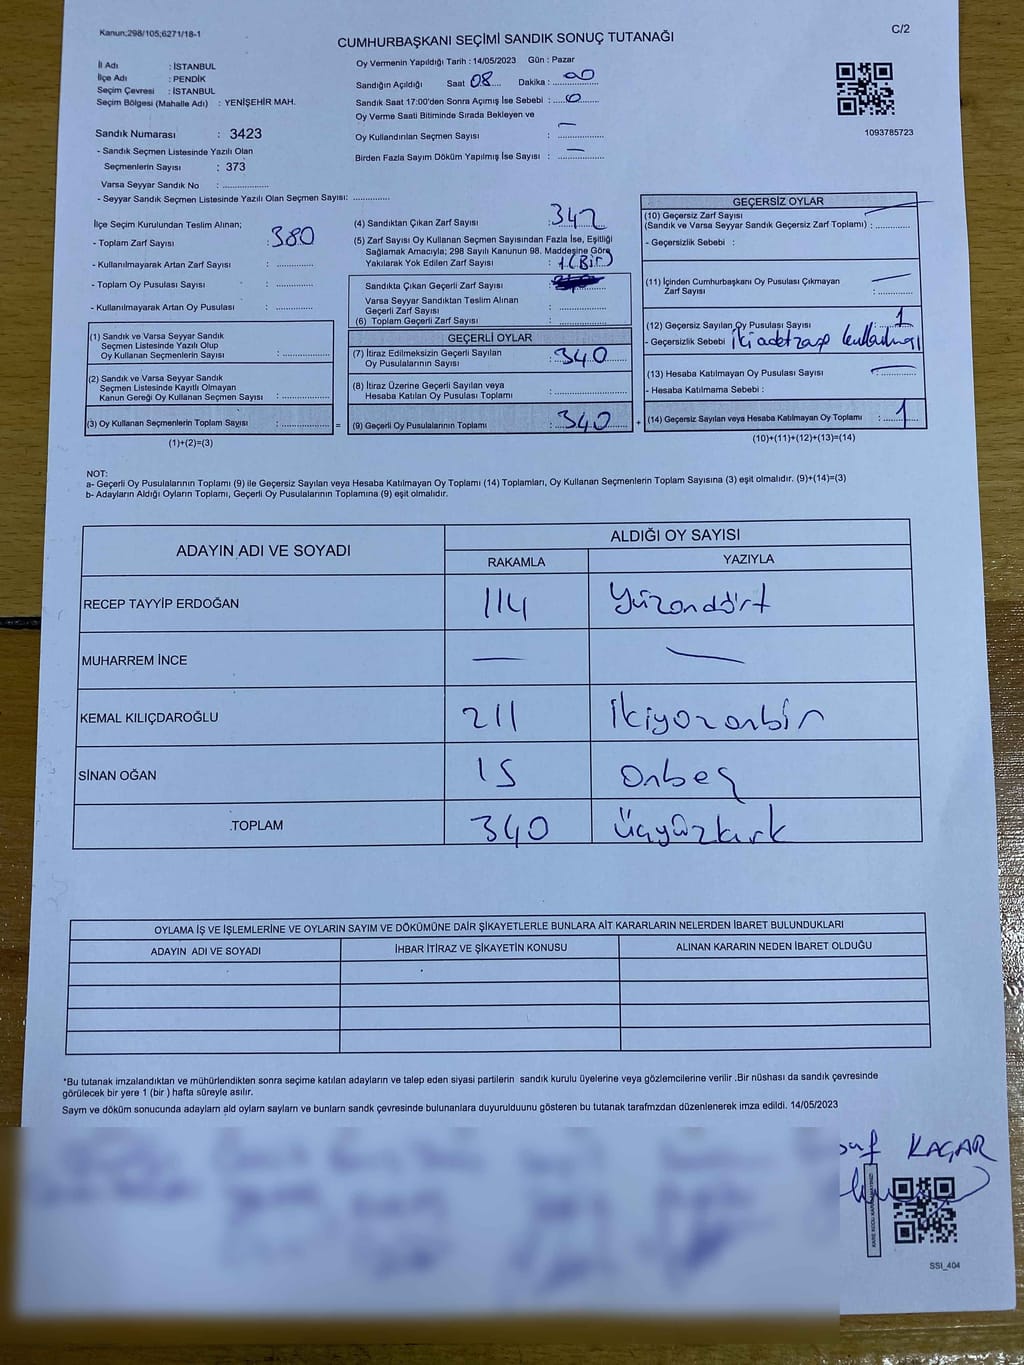 Kanun;298/105;6271/18-1
C/2
CUMHURBAŞKANI SEÇİMİ SANDIK SONUÇ TUTANAĞI
İl Adı : İSTANBUL
İlçe Adı : PENDİK
Seçim Çevresi : İSTANBUL
Seçim Bölgesi (Mahalle Adı) : YENİŞEHİR MAH.
Sandık Numarası : 3423
- Sandık Seçmen Listesinde Yazılı Olan
Seçmenlerin Sayısı : 373
Varsa Seyyar Sandık No : ..................
- Seyyar Sandık Seçmen Listesinde Yazılı Olan Seçmen Sayısı: ..............
Oy Vermenin Yapıldığı Tarih : 14/05/2023 Gün : Pazar
Sandığın Açıldığı Saat 08 Dakika : 00
Sandık Saat 17:00'den Sonra Açımış İse Sebebi : 0
Oy Verme Saati Bitiminde Sırada Bekleyen ve
Oy Kullandırılan Seçmen Sayısı : —
Birden Fazla Sayım Döküm Yapılmış İse Sayısı : —
1093785723
İlçe Seçim Kurulundan Teslim Alınan;
- Toplam Zarf Sayısı : 380
- Kullanılmayarak Artan Zarf Sayısı : ..............
- Toplam Oy Pusulası Sayısı : ..............
- Kullanılmayarak Artan Oy Pusulası : ..............
(1) Sandık ve Varsa Seyyar Sandık
Seçmen Listesinde Yazılı Olup
Oy Kullanan Seçmenlerin Sayısı : ..............
(2) Sandık ve Varsa Seyyar Sandık
Seçmen Listesinde Kayıtlı Olmayan
Kanun Gereği Oy Kullanan Seçmen Sayısı : ..............
(3) Oy Kullanan Seçmenlerin Toplam Sayısı : .............. =
(1)+(2)=(3)
(4) Sandıktan Çıkan Zarf Sayısı : 342
(5) Zarf Sayısı Oy Kullanan Seçmen Sayısından Fazla İse, Eşitliği
Sağlamak Amacıyla; 298 Sayılı Kanunun 98. Maddesine Göre
Yakılarak Yok Edilen Zarf Sayısı : 1 (Bir)
Sandıkta Çıkan Geçerli Zarf Sayısı :
Varsa Seyyar Sandıktan Teslim Alınan
Geçerli Zarf Sayısı : ..............
(6) Toplam Geçerli Zarf Sayısı : ..............
GEÇERLİ OYLAR
(7) İtiraz Edilmeksizin Geçerli Sayılan
Oy Pusulasının Sayısı : 340
(8) İtiraz Üzerine Geçerli Sayılan veya
Hesaba Katılan Oy Pusulası Toplamı : ..............
(9) Geçerli Oy Pusulalarının Toplamı : 340 +
GEÇERSİZ OYLAR
(10) Geçersiz Zarf Sayısı
(Sandık ve Varsa Seyyar Sandık Geçersiz Zarf Toplamı) : —
- Geçersizlik Sebebi :
(11) İçinden Cumhurbaşkanı Oy Pusulası Çıkmayan
Zarf Sayısı : —
(12) Geçersiz Sayılan Oy Pusulası Sayısı : 1
- Geçersizlik Sebebi iki adet zarf kullanılması
(13) Hesaba Katılmayan Oy Pusulası Sayısı : —
- Hesaba Katılmama Sebebi :
(14) Geçersiz Sayılan veya Hesaba Katılmayan Oy Toplamı : 1
(10)+(11)+(12)+(13)=(14)
NOT:
a- Geçerli Oy Pusulalarının Toplamı (9) ile Geçersiz Sayılan veya Hesaba Katılmayan Oy Toplamı (14) Toplamları, Oy Kullanan Seçmenlerin Toplam Sayısına (3) eşit olmalıdır. (9)+(14)=(3)
b- Adayların Aldığı Oyların Toplamı, Geçerli Oy Pusulalarının Toplamına (9) eşit olmalıdır.
ADAYIN ADI VE SOYADI ALDIĞI OY SAYISI
RAKAMLA YAZIYLA
RECEP TAYYİP ERDOĞAN 114 Yüzondört
MUHARREM İNCE — —
KEMAL KILIÇDAROĞLU 211 ikiyüzonbir
SİNAN OĞAN 15 Onbeş
.TOPLAM 340 üçyüzkırk
OYLAMA İŞ VE İŞLEMLERİNE VE OYLARIN SAYIM VE DÖKÜMÜNE DAİR ŞİKAYETLERLE BUNLARA AİT KARARLARIN NELERDEN İBARET BULUNDUKLARI
ADAYIN ADI VE SOYADI İHBAR İTİRAZ VE ŞİKAYETİN KONUSU ALINAN KARARIN NEDEN İBARET OLDUĞU
*Bu tutanak imzalandıktan ve mühürlendikten sonra seçime katılan adayların ve talep eden siyasi partilerin sandık kurulu üyelerine veya gözlemcilerine verilir .Bir nüshası da sandık çevresinde
görülecek bir yere 1 (bir ) hafta süreyle asılır.
Saym ve döküm sonucunda adaylarn ald oylarn saylarn ve bunlarn sandk çevresinde bulunanlara duyurulduunu gösteren bu tutanak tarafmzdan düzenlenerek imza edildi. 14/05/2023
KAÇAR
SSI_404